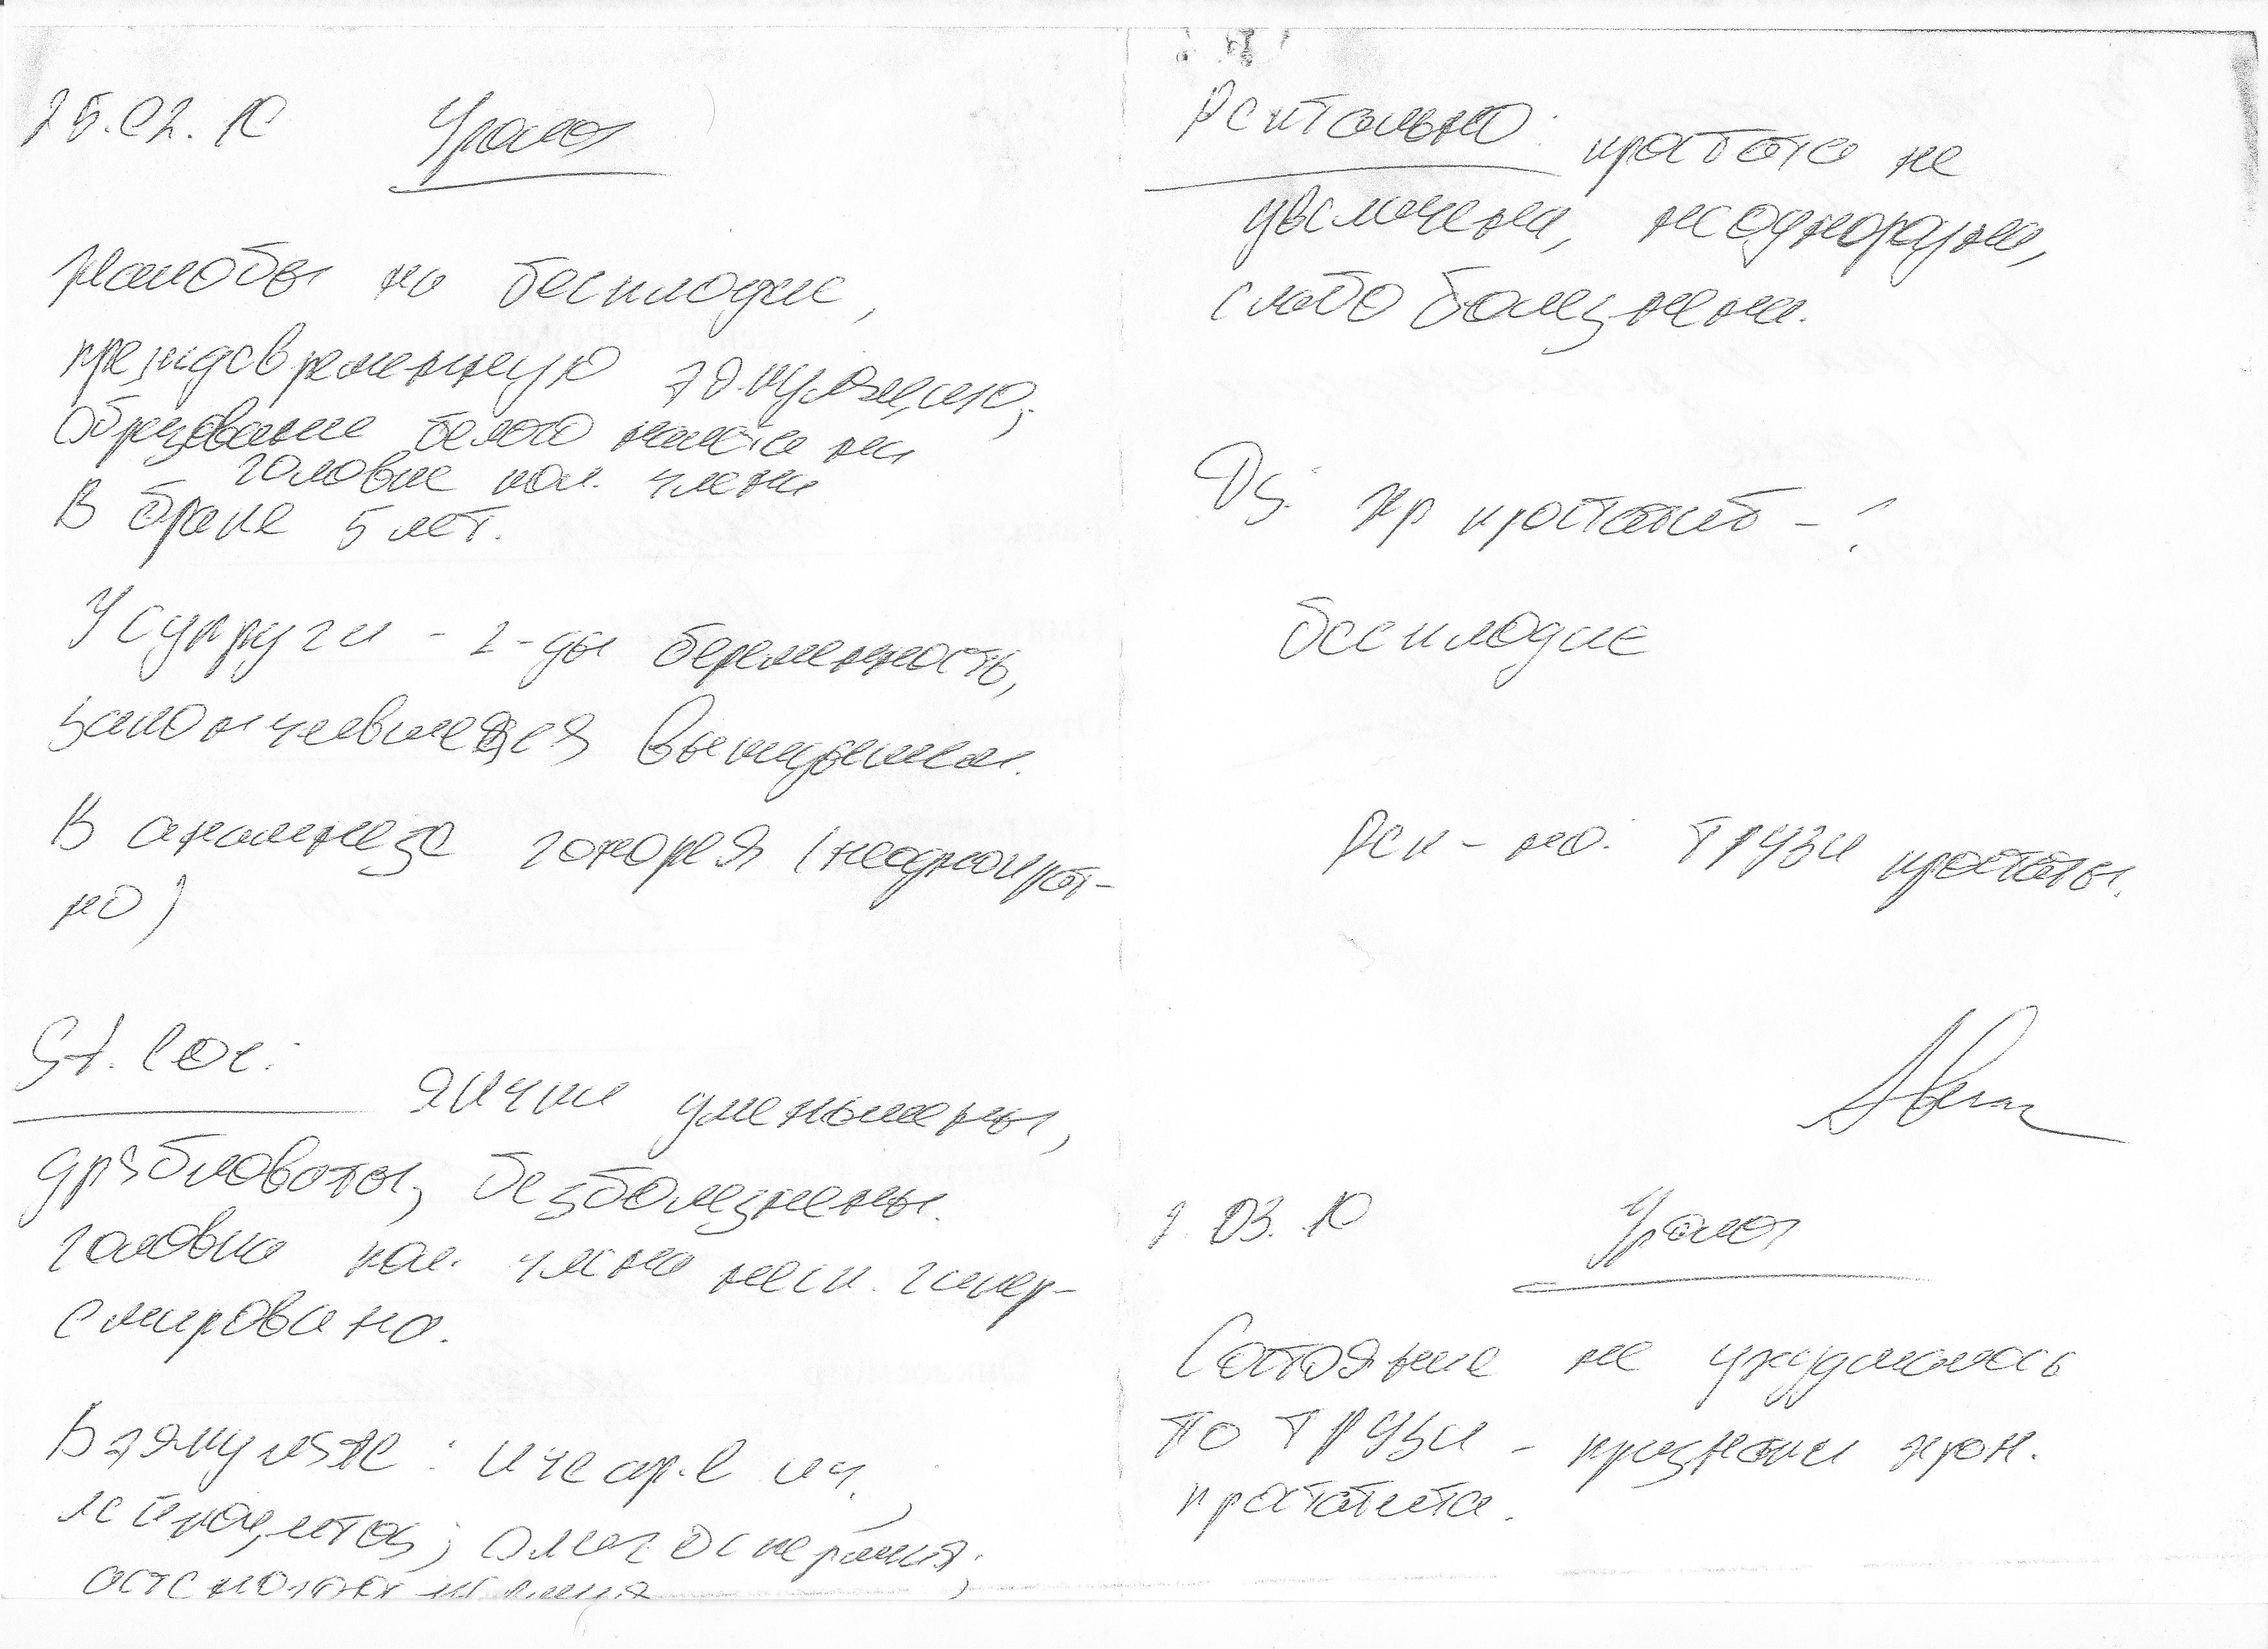 25.02.10 Уролог
Жалобы на бесплодие,
преждевременную эякуляцию,
образование белого налета на
головке пол. члена
В браке 5 лет.
У супруги - 2-ды беременность,
закончившеяся выкидышем.
В анамнезе гонорея (неоднократ-
но)
St. loc:
яички уменьшены,
дрябловаты, безболезненны.
головка пол. члена неск. гипер-
емирована.
В эякуляте:
лейкоцитоз; олигоспермия;
астенозооспермия
Ректально: простата не
увеличена, неоднородна,
слабо болезненна.
Ds: хр простатит - ?
бесплодие
Рек-но: ТРУЗИ простаты.
1.03.10 Уролог
Состояние не ухудшилось
По ТРУЗИ - признаки хрон.
простатита.